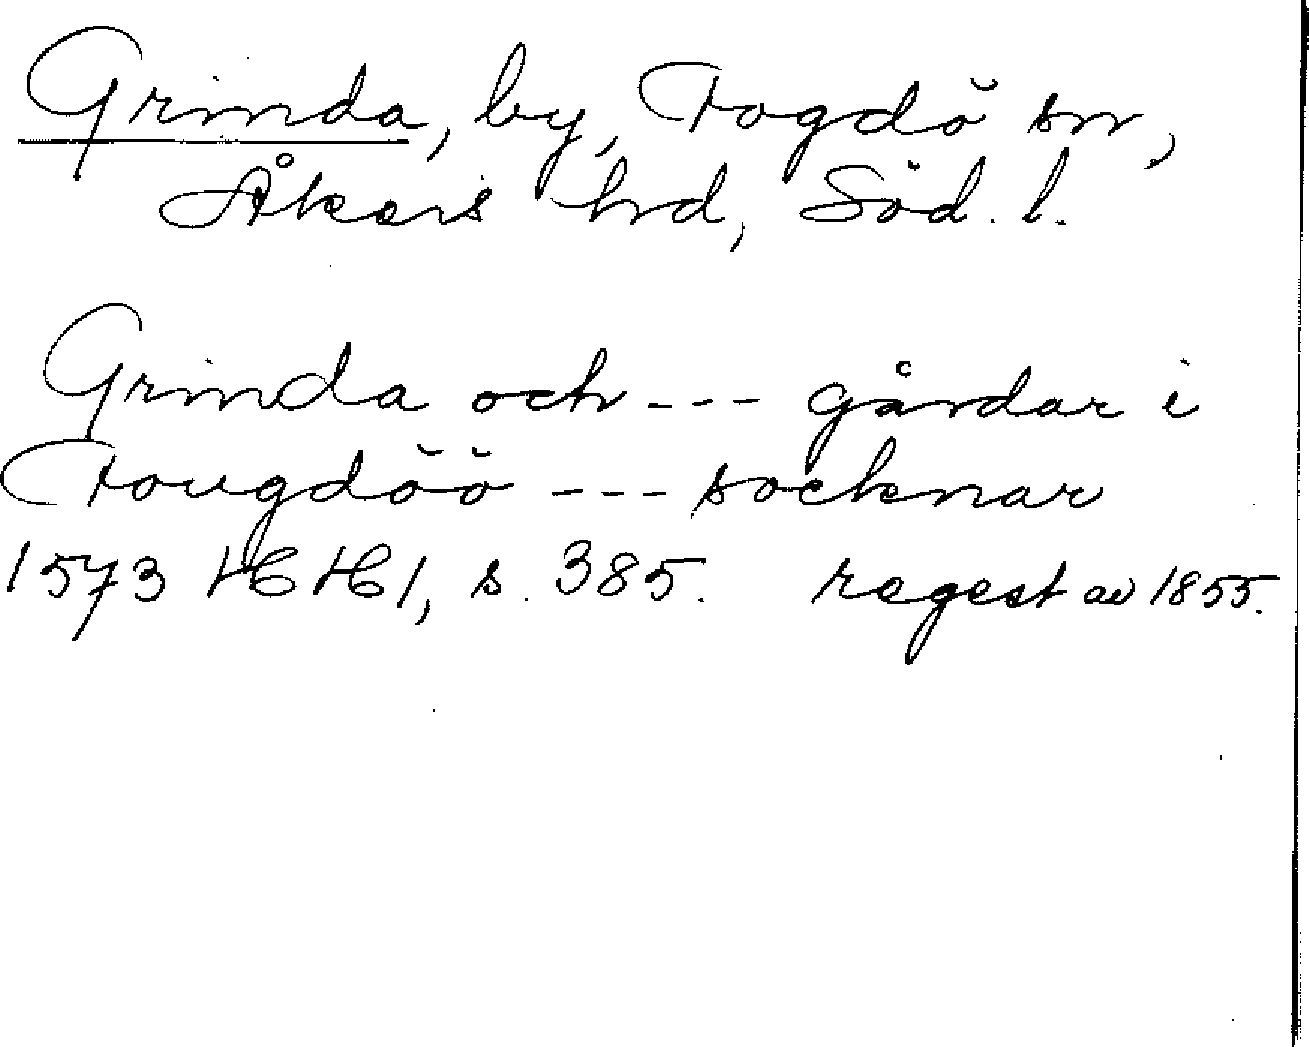 Grinda, by, Fogdö sn,
Åkers hd, Söd. l.
Grinda och --- gårdar i
Fougdöö --- socknar
1573 HH1, s. 385. regest av 1855.